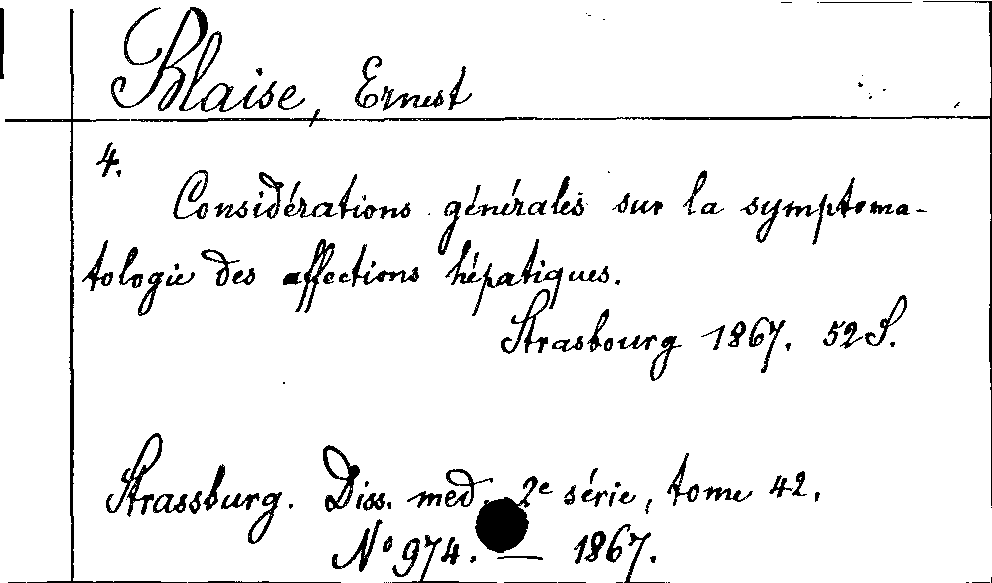 Blaise, Ernest
4.
Considérations générales sur la symptoma-
tologie des affections hépatiques.
Strasbourg 1867. 52 S.
Strassburg. Diss. med. 2e série, tome 42.
No 974. — 1867.